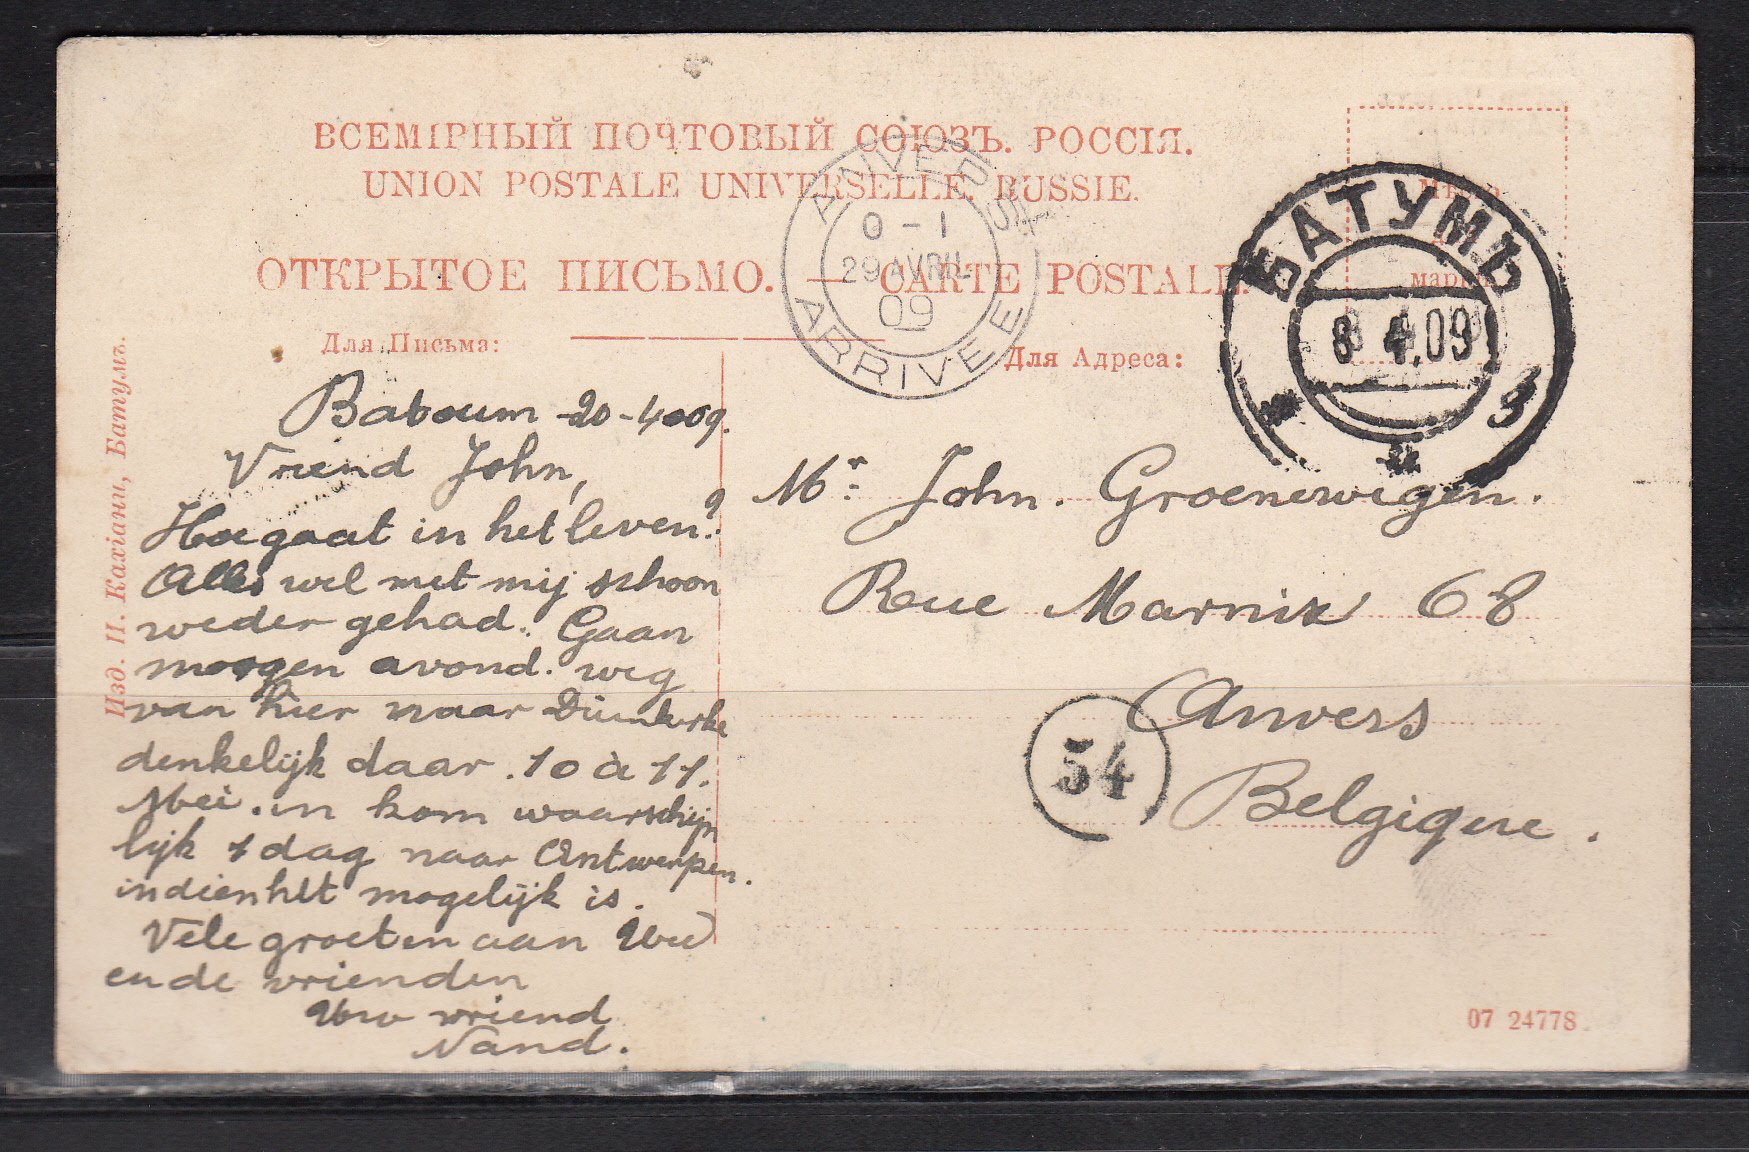 ВСЕМІРНЫЙ ПОЧТОВЫЙ СОЮЗЪ. РОССІЯ.
UNION POSTALE UNIVERSELLE. RUSSIE.
ОТКРЫТОЕ ПИСЬМО. — CARTE POSTALE.
ANVERS
0-1
29 AVRIL
09
ARRIVEE
БАТУМЪ
8 4.09
марки
Для Письма:
Для Адреса:
Изд. П. Кахіани, Батумъ.
Batoum 20-4-09.
Vriend John,
Hoe gaat in het leven?
Alles wel met mij schoon
weder gehad. Gaan
morgen avond. weg
van hier naar Duinkerke
denkelijk daar. 10 à 11.
Mei. in kom waarschijn
lijk 1 dag naar Antwerpen.
indien het mogelijk is.
Vele groeten aan
en de vrienden
Uw vriend
Nand.
Mr. John. Groenewegen.
Rue Marnix 68
Anvers
54
Belgique.
07 24778